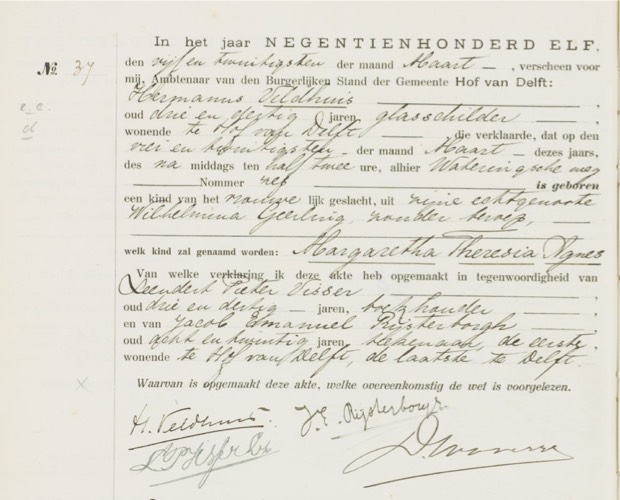 In het jaar NEGENTIENHONDERD ELF,
No. 37
den vijf en twintigsten der maand Maart, verscheen voor
mij, Ambtenaar van den Burgerlijken Stand der Gemeente Hof van Delft:
Hermanus Veldhuis,
oud drie en dertig jaren, glasschilder,
wonende te Hof van Delft die verklaarde, dat op den
vier en twintigsten der maand Maart dezes jaars,
des na middags ten half twee ure, alhier Wateringsche weg
Nommer zes is geboren
een kind van het vrouwelijk geslacht, uit zijne echtgenoote
Wilhelmina Geerling, zonder beroep,
welk kind zal genaamd worden: Margaretha Theresia Agnes
Van welke verklaring ik deze akte heb opgemaakt in tegenwoordigheid van
Leendert Pieter Visser,
oud drie en dertig jaren, boekhouder,
en van Jacob Emanuel Rijsterborgh,
oud acht en twintig jaren, teekenaar, de eerste
wonende te Hof van Delft, de laatste te Delft.
Waarvan is opgemaakt deze akte, welke overeenkomstig de wet is voorgelezen.
H. Veldhuis. J.E. Rijsterborgh